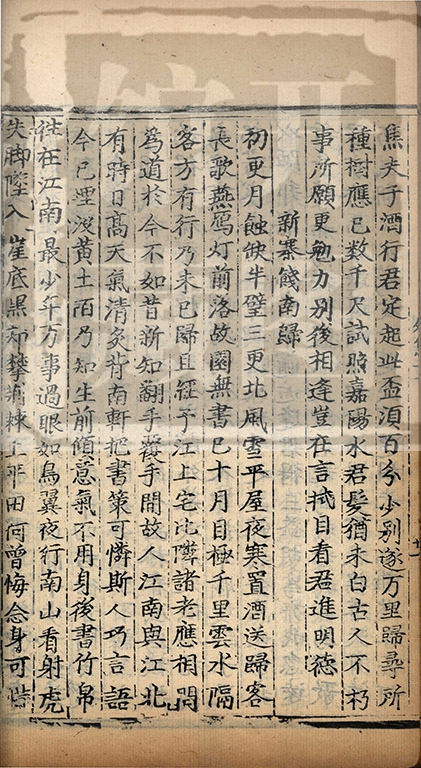 焦夫子酒行君定起此盃湏百分少別遂万里歸尋所
種樹應已数千尺試照嘉陽水君髮猶未白古人不朽
事所願更勉力別後相逢豈在言拭目看君進明德
新寨餞南歸
初更月蝕缺半璧三更北風雪平屋夜寒置酒送歸客
長歌燕鴈灯前落故園無書已十月目極千里雲水隔
客方有行乃未已歸且經予江上宅比隣諸老應相問
爲道於今不如昔新知翻手覆手間故人江南與江北
有時日髙天氣清炙背南軒把書策可憐斯人巧言語
今已埋没黄土陌乃知生前傾意氣不用身後書竹帛
往在江南最少年万事過眼如鳥翼夜行南山看射虎
失脚墜入崖底黒却攀荆棘上平田何曾悔念身可惜